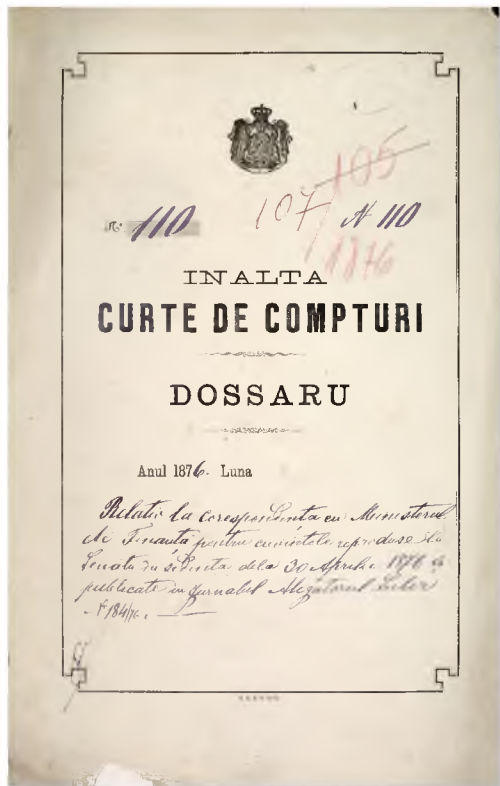 105
No 110 107 N 110
1876
INALTA
CURTE DE COMPTURI
DOSSARU
Anul 1876. Luna
Relativ la corespondinta cu Ministerul
de Finantă pentru cuvintele reproduse
Senatu in sedinta dela 30 Aprilie 1876 si
publicate in jurnalul Alegătorul Liber
N 184/76.